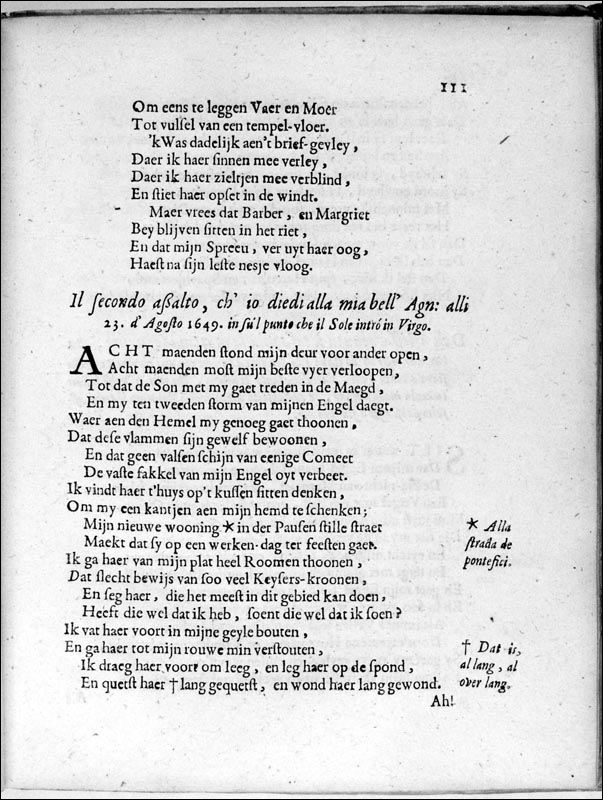 111
Om eens te leggen Vaer en Moer
Tot vulsel van een tempel-vloer.
'kWas dadelijk aen't brief-gevley,
Daer ik haer sinnen mee verley,
Daer ik haer zieltjen mee verblind,
En stiet haer opset in de windt.
Maer vrees dat Barber, en Margriet
Bey blijven sitten in het riet,
En dat mijn Spreeu, ver uyt haer oog,
Haest na sijn leste nesje vloog.
Il secondo aßalto, ch' io diedi alla mia bell' Agn: alli
23. d' Agosto 1649. in sú'l punto che il Sole intró in Virgo.
ACHT maenden stond mijn deur voor ander open,
Acht maenden most mijn beste vyer verloopen,
Tot dat de Son met my gaet treden in de Maegd,
En my ten tweeden storm van mijnen Engel daegt.
Waer aen den Hemel my genoeg gaet thoonen,
Dat dese vlammen sijn gewelf bewoonen,
En dat geen valsen schijn van eenige Comeet
De vaste fakkel van mijn Engel oyt verbeet.
Ik vindt haer t'huys op't kussen sitten denken,
Om my een kantjen aen mijn hemd te schenken;
Mijn nieuwe wooning * in der Pausen stille straet
Maekt dat sy op een werken-dag ter feesten gaet.
* Alla
strada de
pontefici.
Ik ga haer van mijn plat heel Roomen thoonen,
Dat slecht bewijs van soo veel Keysers-kroonen,
En seg haer, die het meest in dit gebied kan doen,
Heeft die wel dat ik heb, soent die wel dat ik soen?
Ik vat haer voort in mijne geyle bouten,
En ga haer tot mijn rouwe min verstouten,
Ik draeg haer voort om leeg, en leg haer op de spond,
En quetst haer † lang gequetst, en wond haer lang gewond.
† Dat is,
al lang, al
over lang.
Ah!